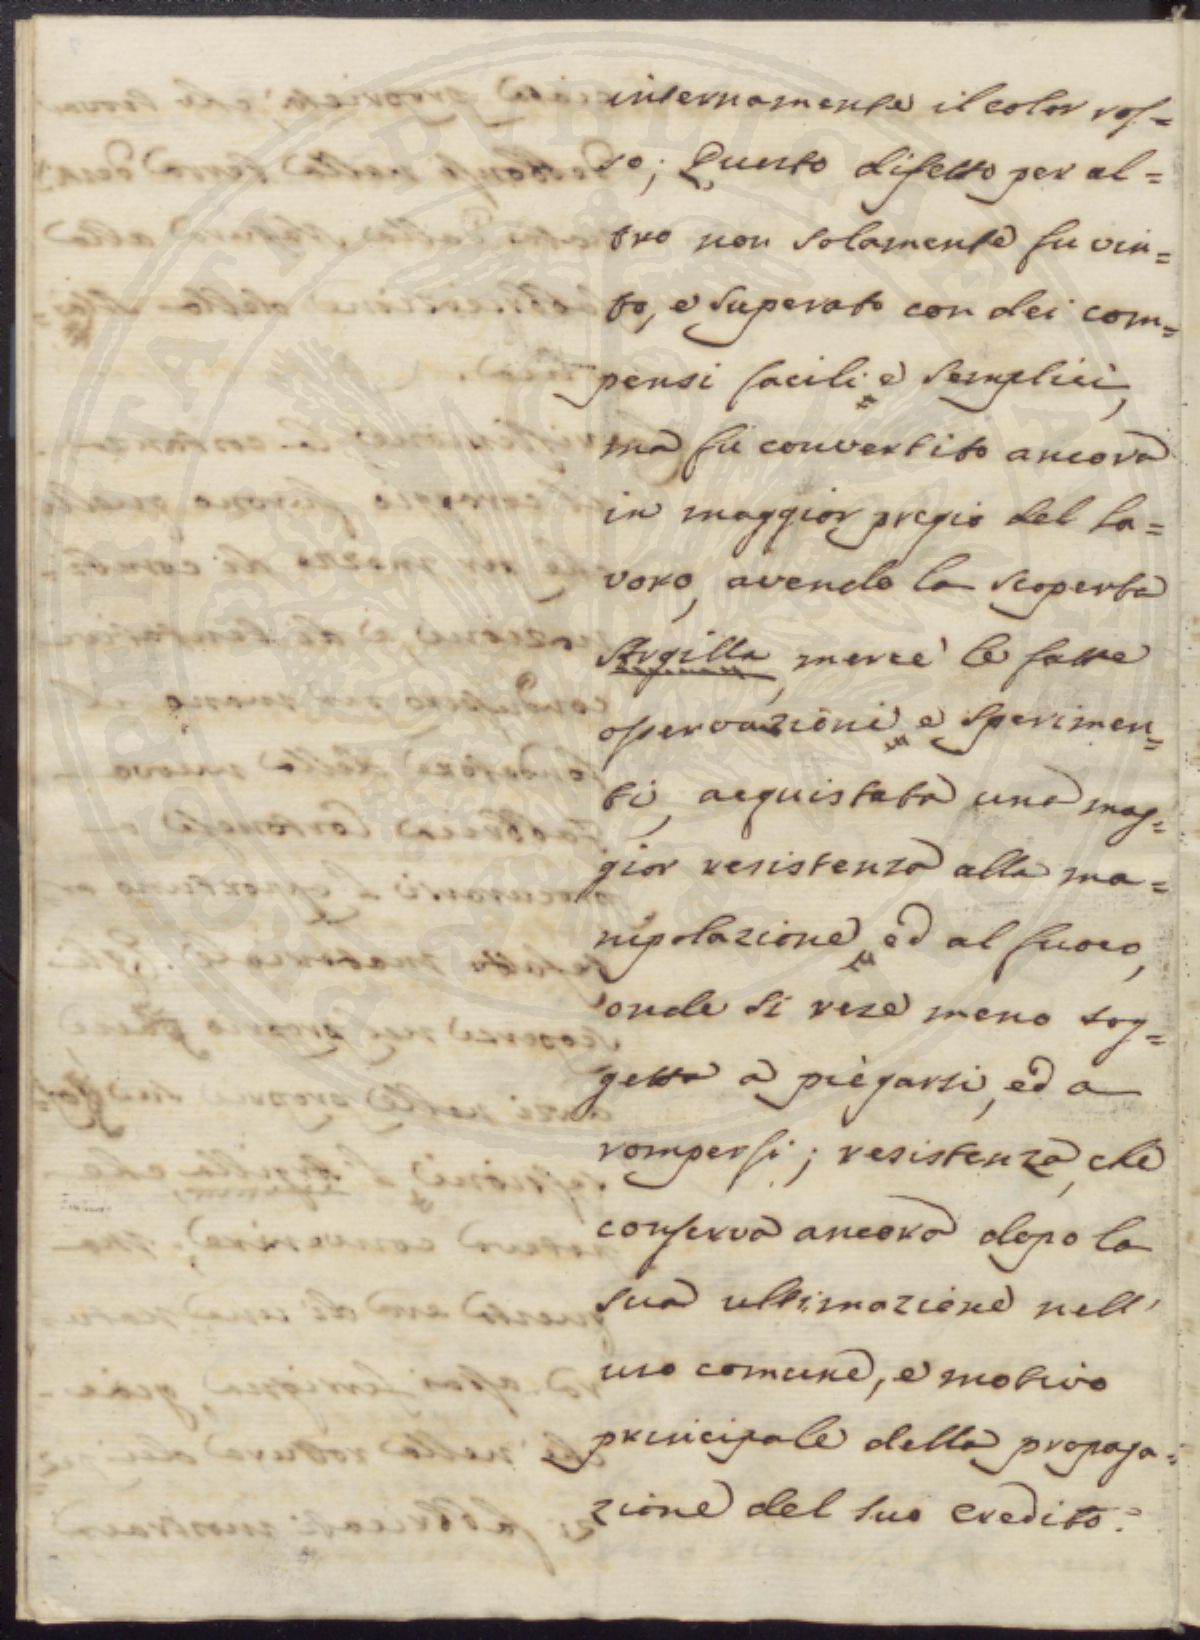 internamente il color ros=
so; Questo difetto per al=
tro non solamente fu vin=
to, e superato con dei com=
pensi facili e semplici,
ma fù convertito ancora
in maggior pregio del la=
voro, avendo la scoperta
Argilla, mercè le fatte
osservazioni e sperimen=
ti, acquistata una mag=
gior resistenza alla ma=
nipolazione, ed al fuoco,
onde si rese meno sog=
getta a piegarsi, ed a
rompersi; resistenza, che
conserva ancora dopo la
sua ultimazione nell'
uso comune, e motivo
principale della propaga=
zione del suo credito.